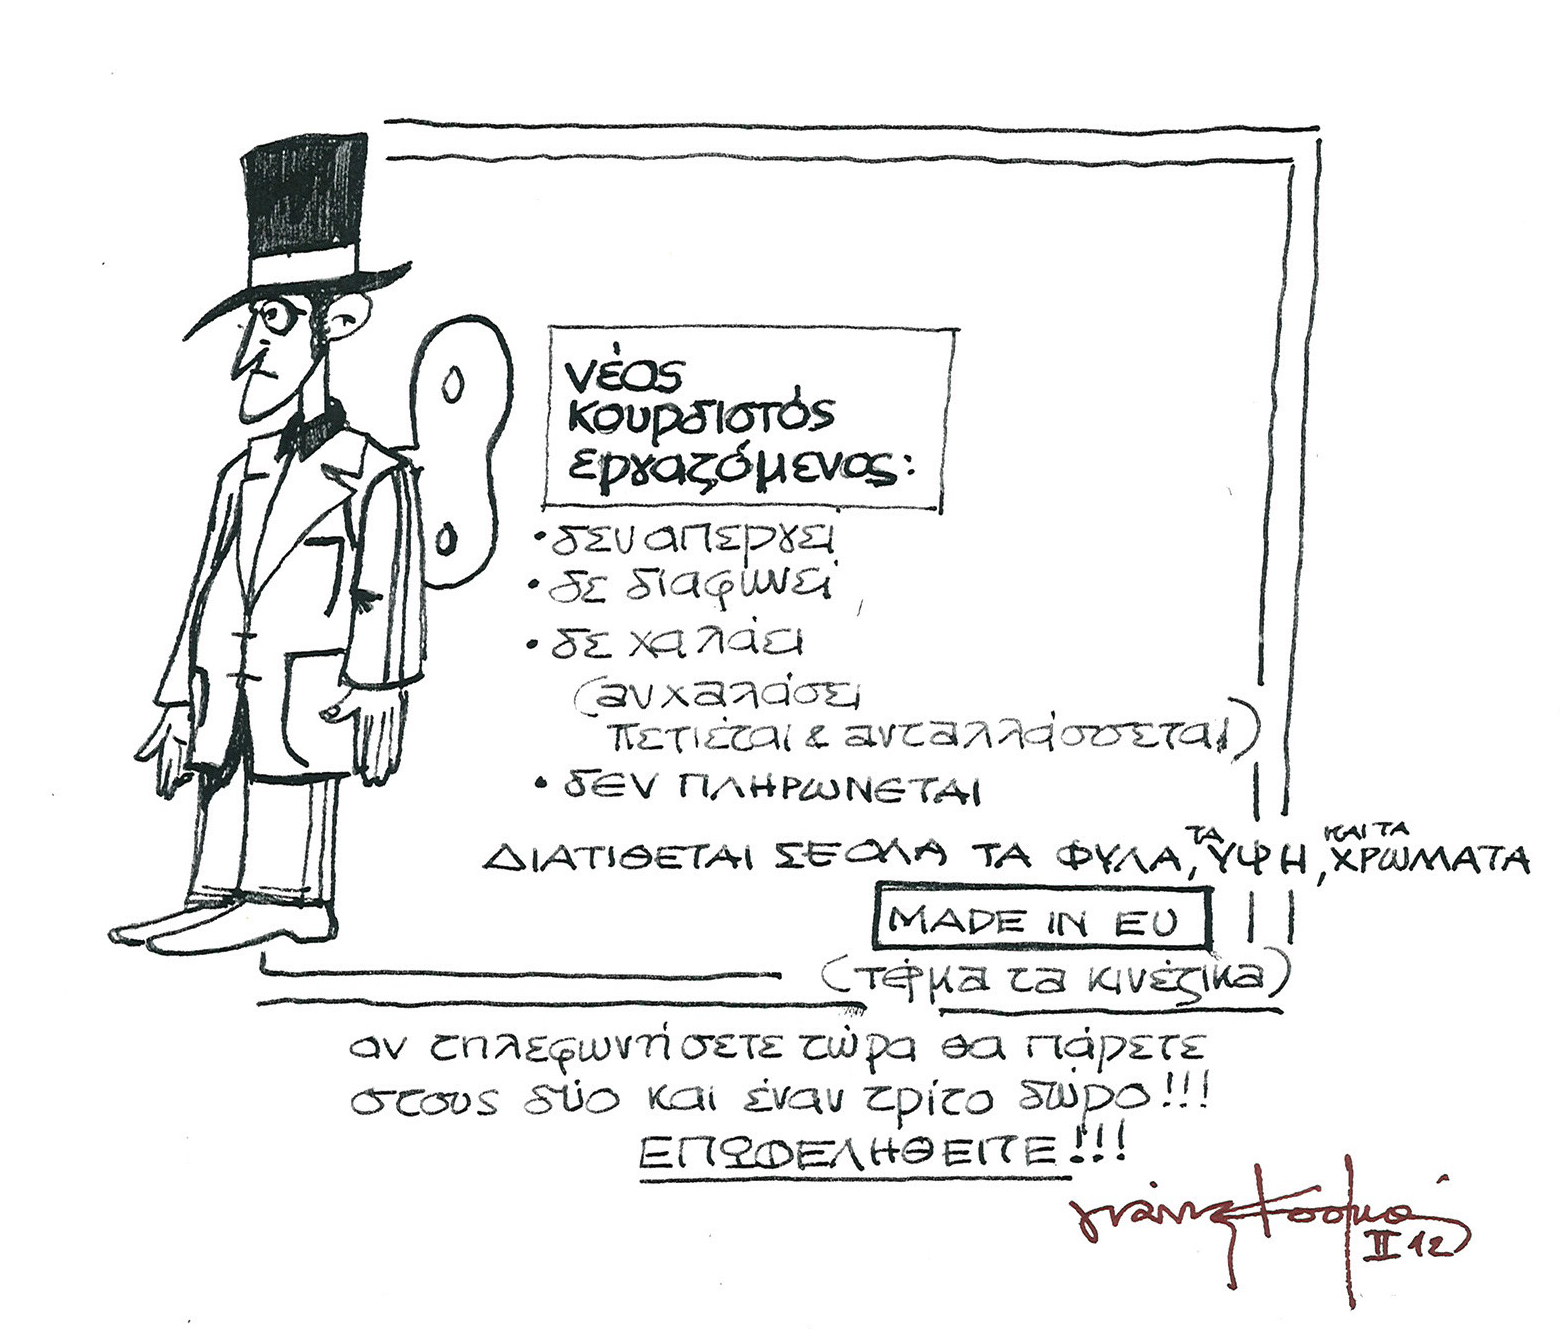 νέος
κουρδιστός
εργαζόμενος:
• δεν απεργεί
• δε διαφωνεί
• δε χαλάει
(αν χαλάσει
πετιέται & ανταλλάσσεται)
• δεν ΠΛΗΡΩΝΕΤΑΙ
ΔΙΑΤΙΘΕΤΑΙ ΣΕ ΟΛΑ ΤΑ ΦΥΛΑ, ΤΑ ΥΨΗ, ΚΑΙ ΤΑ ΧΡΩΜΑΤΑ
MADE IN EU
(τέρμα τα κινέζικα)
αν τηλεφωνήσετε τώρα θα πάρετε
στους δύο και έναν τρίτο δώρο!!!
ΕΠΩΦΕΛΗΘΕΙΤΕ!!!
γιάννης
II 12